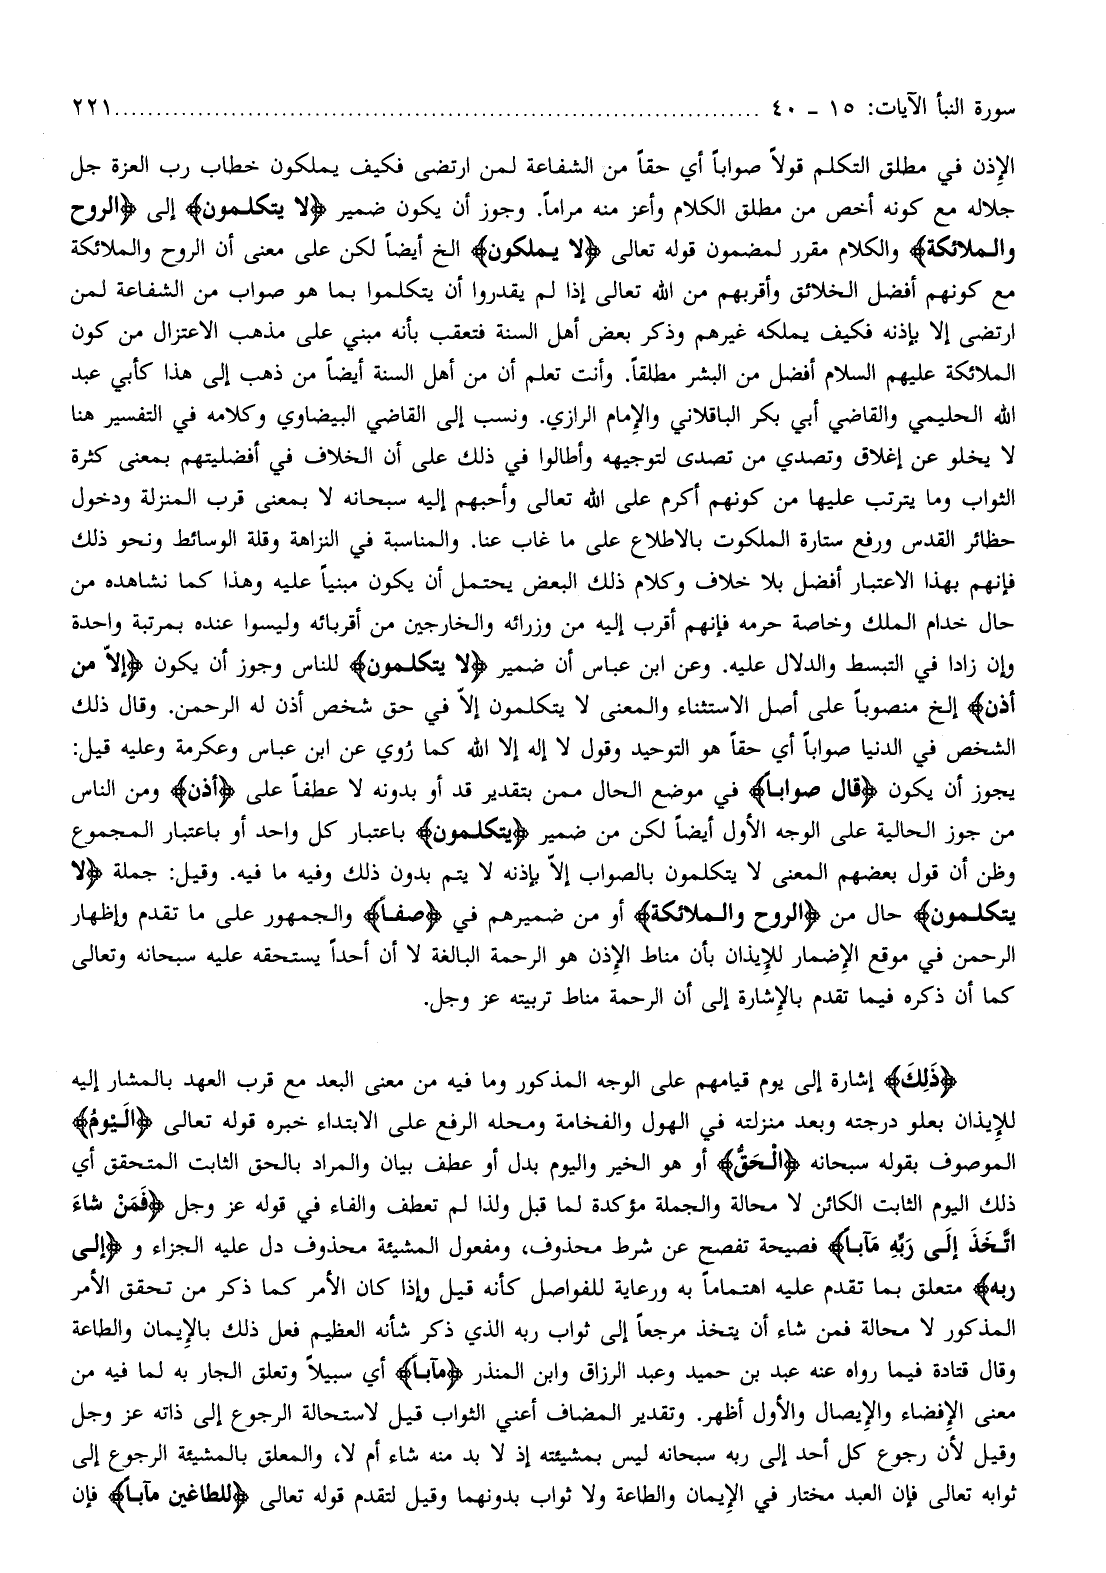 سورة النبأ الآيات: ١٥ ـ ٤٠ ........................................................................... ٢٢١
الإِذن في مطلق التكلم قولاً صواباً أي حقاً من الشفاعة لمن ارتضى فكيف يملكون خطاب رب العزة جل
جلاله مع كونه أخص من مطلق الكلام وأعز منه مراماً. وجوز أن يكون ضمير ﴿لا يتكلمون﴾ إلى ﴿الروح
والملائكة﴾ والكلام مقرر لمضمون قوله تعالى ﴿لا يملكون﴾ الخ أيضاً لكن على معنى أن الروح والملائكة
مع كونهم أفضل الخلائق وأقربهم من الله تعالى إذا لم يقدروا أن يتكلموا بما هو صواب من الشفاعة لمن
ارتضى إلا بإذنه فكيف يملكه غيرهم وذكر بعض أهل السنة فتعقب بأنه مبني على مذهب الاعتزال من كون
الملائكة عليهم السلام أفضل من البشر مطلقاً. وأنت تعلم أن من أهل السنة أيضاً من ذهب إلى هذا كأبي عبد
الله الحليمي والقاضي أبي بكر الباقلاني والإِمام الرازي. ونسب إلى القاضي البيضاوي وكلامه في التفسير هنا
لا يخلو عن إغلاق وتصدي من تصدى لتوجيهه وأطالوا في ذلك على أن الخلاف في أفضليتهم بمعنى كثرة
الثواب وما يترتب عليها من كونهم أكرم على الله تعالى وأحبهم إليه سبحانه لا بمعنى قرب المنزلة ودخول
حظائر القدس ورفع ستارة الملكوت بالاطلاع على ما غاب عنا. والمناسبة في النزاهة وقلة الوسائط ونحو ذلك
فإنهم بهذا الاعتبار أفضل بلا خلاف وكلام ذلك البعض يحتمل أن يكون مبنياً عليه وهذا كما نشاهده من
حال خدام الملك وخاصة حرمه فإنهم أقرب إليه من وزرائه والخارجين من أقربائه وليسوا عنده بمرتبة واحدة
وإن زادا في التبسط والدلال عليه. وعن ابن عباس أن ضمير ﴿لا يتكلمون﴾ للناس وجوز أن يكون ﴿إلاّ من
أذن﴾ إلخ منصوباً على أصل الاستثناء والمعنى لا يتكلمون إلاّ في حق شخص أذن له الرحمن. وقال ذلك
الشخص في الدنيا صواباً أي حقاً هو التوحيد وقول لا إله إلا الله كما رُوي عن ابن عباس وعكرمة وعليه قيل:
يجوز أن يكون ﴿قال صواباً﴾ في موضع الحال ممن بتقدير قد أو بدونه لا عطفاً على ﴿أذن﴾ ومن الناس
من جوز الحالية على الوجه الأول أيضاً لكن من ضمير ﴿يتكلمون﴾ باعتبار كل واحد أو باعتبار المجموع
وظن أن قول بعضهم المعنى لا يتكلمون بالصواب إلاّ بإذنه لا يتم بدون ذلك وفيه ما فيه. وقيل: جملة ﴿لا
يتكلمون﴾ حال من ﴿الروح والملائكة﴾ أو من ضميرهم في ﴿صفاً﴾ والجمهور على ما تقدم وإظهار
الرحمن في موقع الإِضمار للإِيذان بأن مناط الإِذن هو الرحمة البالغة لا أن أحداً يستحقه عليه سبحانه وتعالى
كما أن ذكره فيما تقدم بالإِشارة إلى أن الرحمة مناط تربيته عز وجل.
﴿ذَلِكَ﴾ إشارة إلى يوم قيامهم على الوجه المذكور وما فيه من معنى البعد مع قرب العهد بالمشار إليه
للإِيذان بعلو درجته وبعد منزلته في الهول والفخامة ومحله الرفع على الابتداء خبره قوله تعالى ﴿الْيَوْمُ﴾
الموصوف بقوله سبحانه ﴿الْحَقُّ﴾ أو هو الخير واليوم بدل أو عطف بيان والمراد بالحق الثابت المتحقق أي
ذلك اليوم الثابت الكائن لا محالة والجملة مؤكدة لما قبل ولذا لم تعطف والفاء في قوله عز وجل ﴿فَمَنْ شاءَ
اتَّخَذَ إِلَى رَبِّهِ مَآباً﴾ فصيحة تفصح عن شرط محذوف، ومفعول المشيئة محذوف دل عليه الجزاء و ﴿إلى
ربه﴾ متعلق بما تقدم عليه اهتماماً به ورعاية للفواصل كأنه قيل وإذا كان الأمر كما ذكر من تحقق الأمر
المذكور لا محالة فمن شاء أن يتخذ مرجعاً إلى ثواب ربه الذي ذكر شأنه العظيم فعل ذلك بالإِيمان والطاعة
وقال قتادة فيما رواه عنه عبد بن حميد وعبد الرزاق وابن المنذر ﴿مآباً﴾ أي سبيلاً وتعلق الجار به لما فيه من
معنى الإِفضاء والإِيصال والأول أظهر. وتقدير المضاف أعني الثواب قيل لاستحالة الرجوع إلى ذاته عز وجل
وقيل لأن رجوع كل أحد إلى ربه سبحانه ليس بمشيئته إذ لا بد منه شاء أم لا، والمعلق بالمشيئة الرجوع إلى
ثوابه تعالى فإن العبد مختار في الإِيمان والطاعة ولا ثواب بدونهما وقيل لتقدم قوله تعالى ﴿للطاغين مآباً﴾ فإن